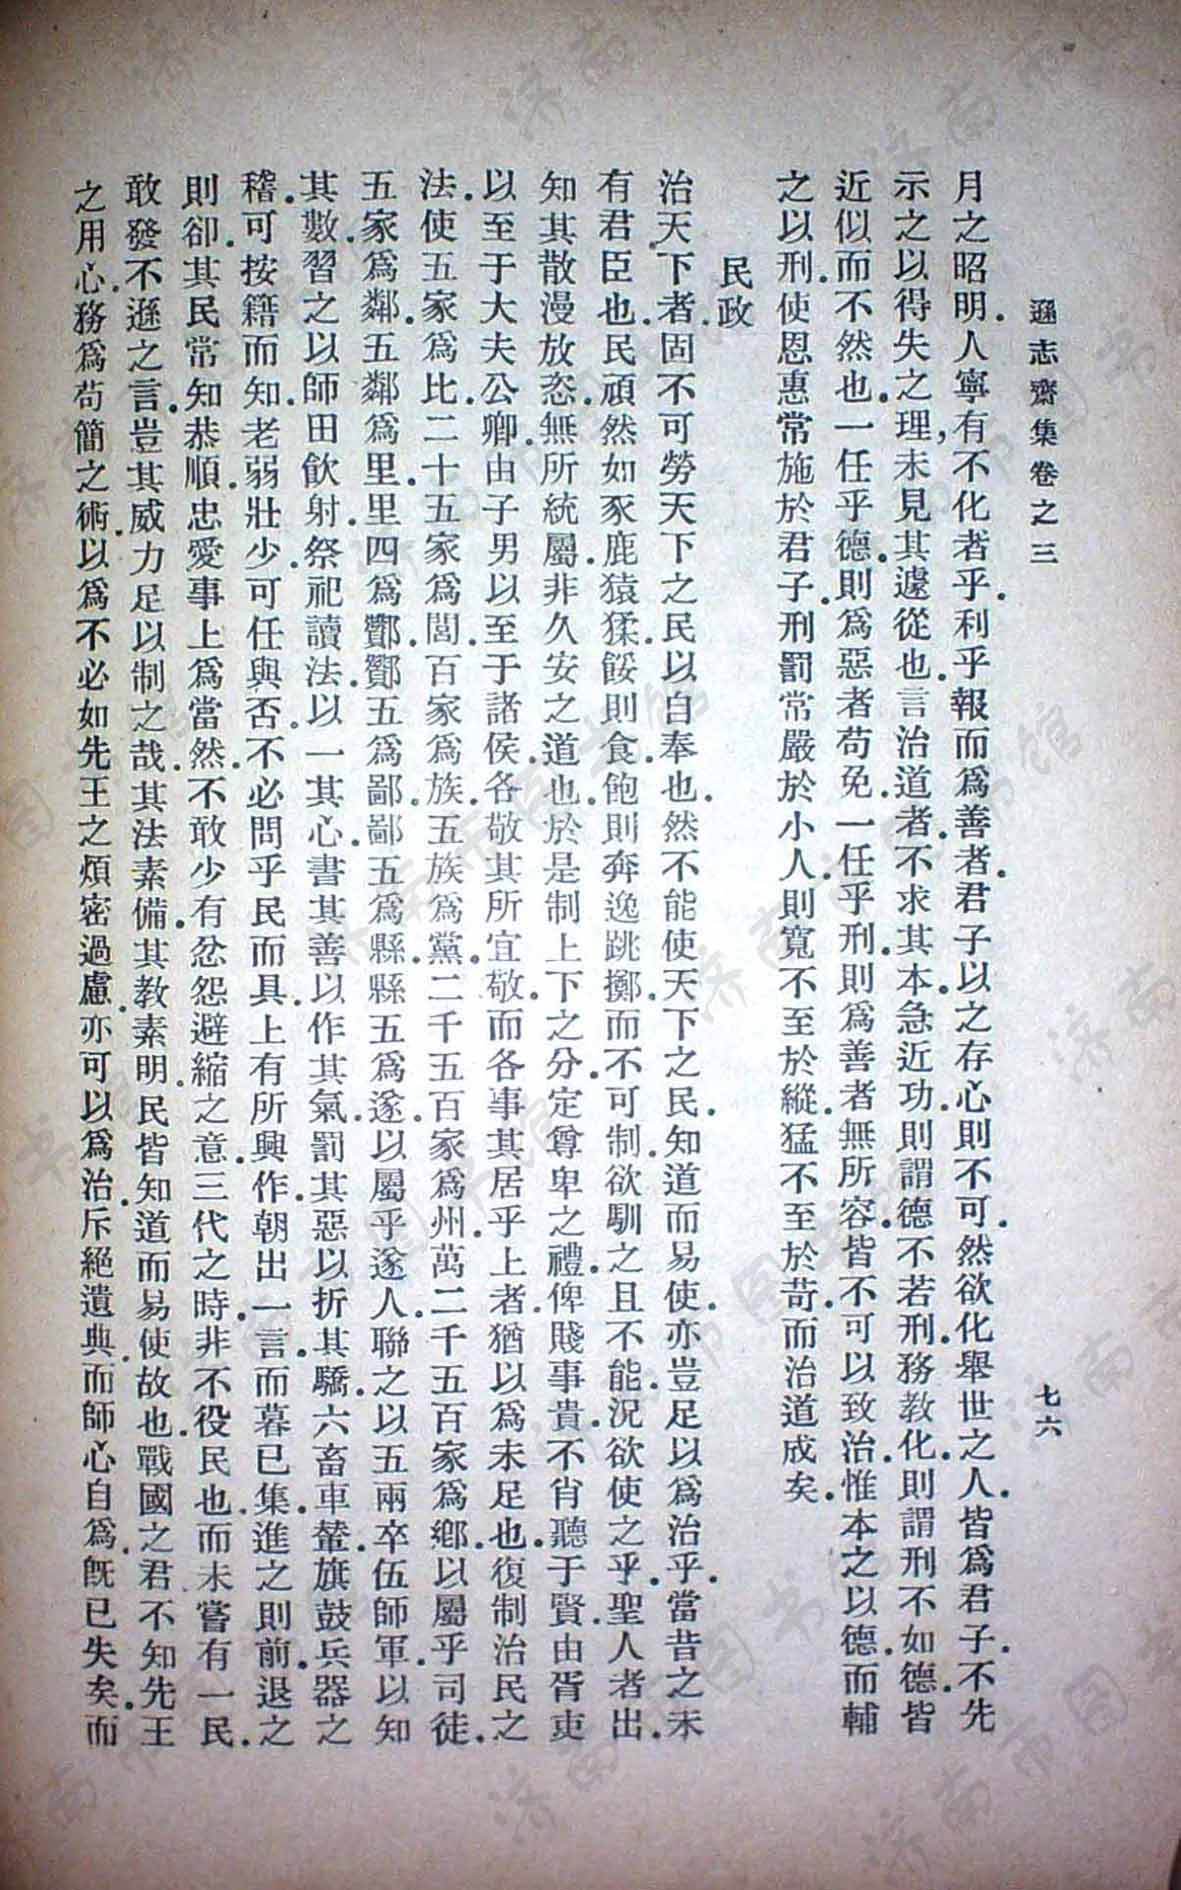 遜志齋集卷之三
七六
月之昭明.人寧有不化者乎.利乎報而爲善者.君子以之存心則不可.然欲化舉世之人.皆爲君子.不先
示之以得失之理,未見其遽從也.言治道者.不求其本.急近功.則謂德不若刑.務教化.則謂刑不如德.皆
近似而不然也.一任乎德.則爲惡者苟免.一任乎刑.則爲善者無所容.皆不可以致治.惟本之以德.而輔
之以刑.使恩惠常施於君子.刑罰常嚴於小人.則寬不至於縱.猛不至於苛.而治道成矣.
民政
治天下者.固不可勞天下之民以自奉也.然不能使天下之民.知道而易使.亦豈足以爲治乎.當昔之未
有君臣也.民頑然如豕鹿猿猱.餒則食.飽則奔逸跳擲.而不可制.欲馴之且不能.況欲使之乎.聖人者出.
知其散漫放恣.無所統屬.非久安之道也.於是制上下之分.定尊卑之禮.俾賤事貴.不肖聽于賢.由胥吏
以至于大夫公卿.由子男以至于諸侯.各敬其所宜敬.而各事其居乎上者.猶以爲未足也.復制治民之
法.使五家爲比.二十五家爲閭.百家爲族.五族爲黨.二千五百家爲州.萬二千五百家爲鄉.以屬乎司徒.
五家爲鄰.五鄰爲里.里四爲酇.酇五爲鄙.鄙五爲縣.縣五爲遂.以屬乎遂人.聯之以五兩卒伍師軍.以知
其數.習之以師田飲射.祭祀讀法.以一其心.書其善.以作其氣.罰其惡.以折其驕.六畜車輦.旗鼓兵器之
稽.可按籍而知.老弱壯少.可任與否.不必問乎民而具.上有所興作.朝出一言.而暮已集.進之則前.退之
則卻.其民常知恭順.忠愛事上爲當然.不敢少有忿怨避縮之意.三代之時.非不役民也.而未嘗有一民.
敢發不遜之言.豈其威力足以制之哉.其法素備.其教素明.民皆知道而易使故也.戰國之君.不知先王
之用心.務爲苟簡之術.以爲不必如先王之煩密過慮.亦可以爲治.斥絕遺典.而師心自爲.旣已失矣.而